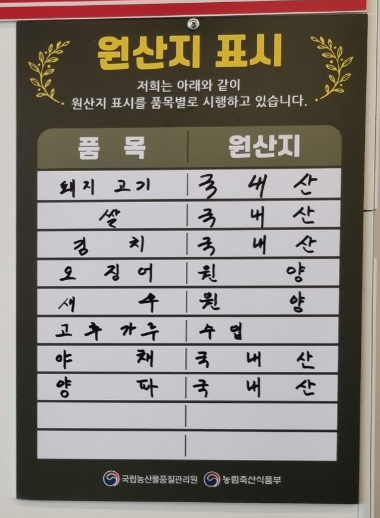 원산지 표시
저희는 아래와 같이
원산지 표시를 품목별로 시행하고 있습니다.
품 목 원산지
돼지 고기 국 내 산
쌀 국 내 산
김 치 국 내 산
오 징 어 원 양
새 우 원 양
고 추 가 루 수 입
야 채 국 내 산
양 파 국 내 산
국립농산물품질관리원 농림축산식품부